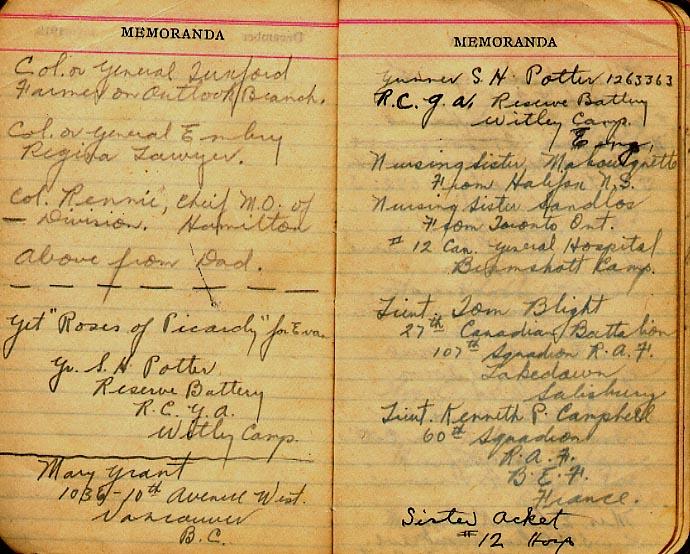 MEMORANDA
Col. or General Tuxford
Farmer on Outlook Branch.
Col. or General Embury
Regina Lawyer.
Col. Rennie, Chief M.O. of
Division. Hamilton
Above from Dad.
Get "Roses of Picardy" for Evan
Gr. S. H. Potter
Reserve Battery
R. C. G. A.
Witley Camp.
Mary Grant
1036 - 10th Avenue West.
Vancouver
B.C.
MEMORANDA
Gunner S. H. Potter 1263363
R.C.G.A. Reserve Battery
Witley Camp.
Eng.
Nursing Sister
From Halifax N.S.
Nursing Sister Sandlos
From Toronto Ont.
# 12 Can. General Hospital
Bramshott Camp.
Lieut. Tom Blight
27th Canadian Battalion
107th Squadron R.A.F.
Lakedown
Salisbury
Lieut. Kenneth P. Campbell
60th Squadron
R.A.F.
B.E.F.
France.
Sister Acket
#12 Hosp